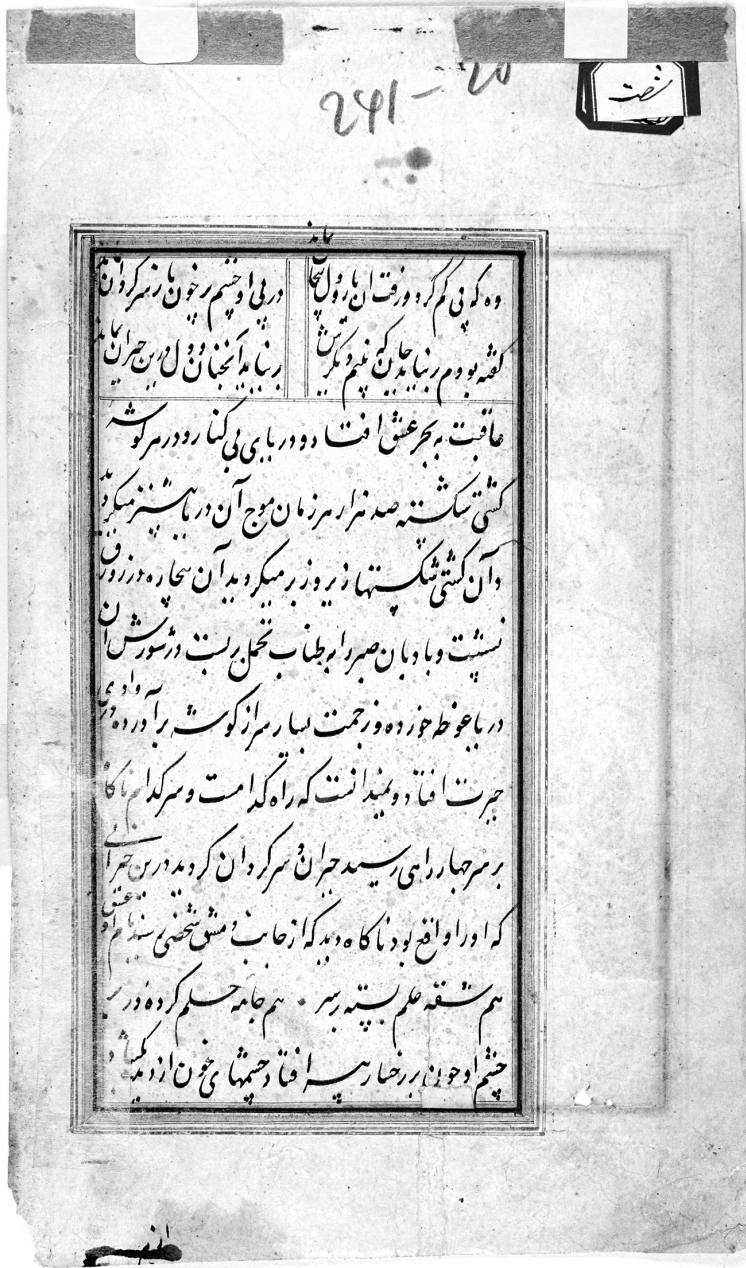 ۲۴۱ – ۲۵
شصت
ماند
وه که پی گم گرد و رفت ان یار و دل بیجان در پی او چشم پر خون باز سرگردان
گفته بودم بر نیاید جان که بینم دیگرش بر نیاید آنچنان و دل درین حیران بماند
عاقبت به بحر عشق افتاد و دریای بی کنار و در هر گوشه
کشتی شکسته صد هزار هر زمان موج آن دریا بیشتر میگردید
و آن کشتی شکستها زیر و زبر میگردید آن بیچاره در زورق
نشست و بادبان صبر را به طناب تحمل بربست و در شورش ان
دریا غوطه خورده و زحمت بسیار سر از گوشه بر آورده در وادی
حیرت افتاد و نمیدانست که راه کدامست و سر کدام ناکاه
بر سر چهار راهی رسید حیران و سرکردان کردید درین حیرانی
که او را واقع بود ناکاه دید که از جانب دمشق شخصی عشق نام
هم شقه علم بسته بر سر هم جامه حلم کرده در بر
چشم او چون بر رخسار افتاد چشمهای خون از دیده